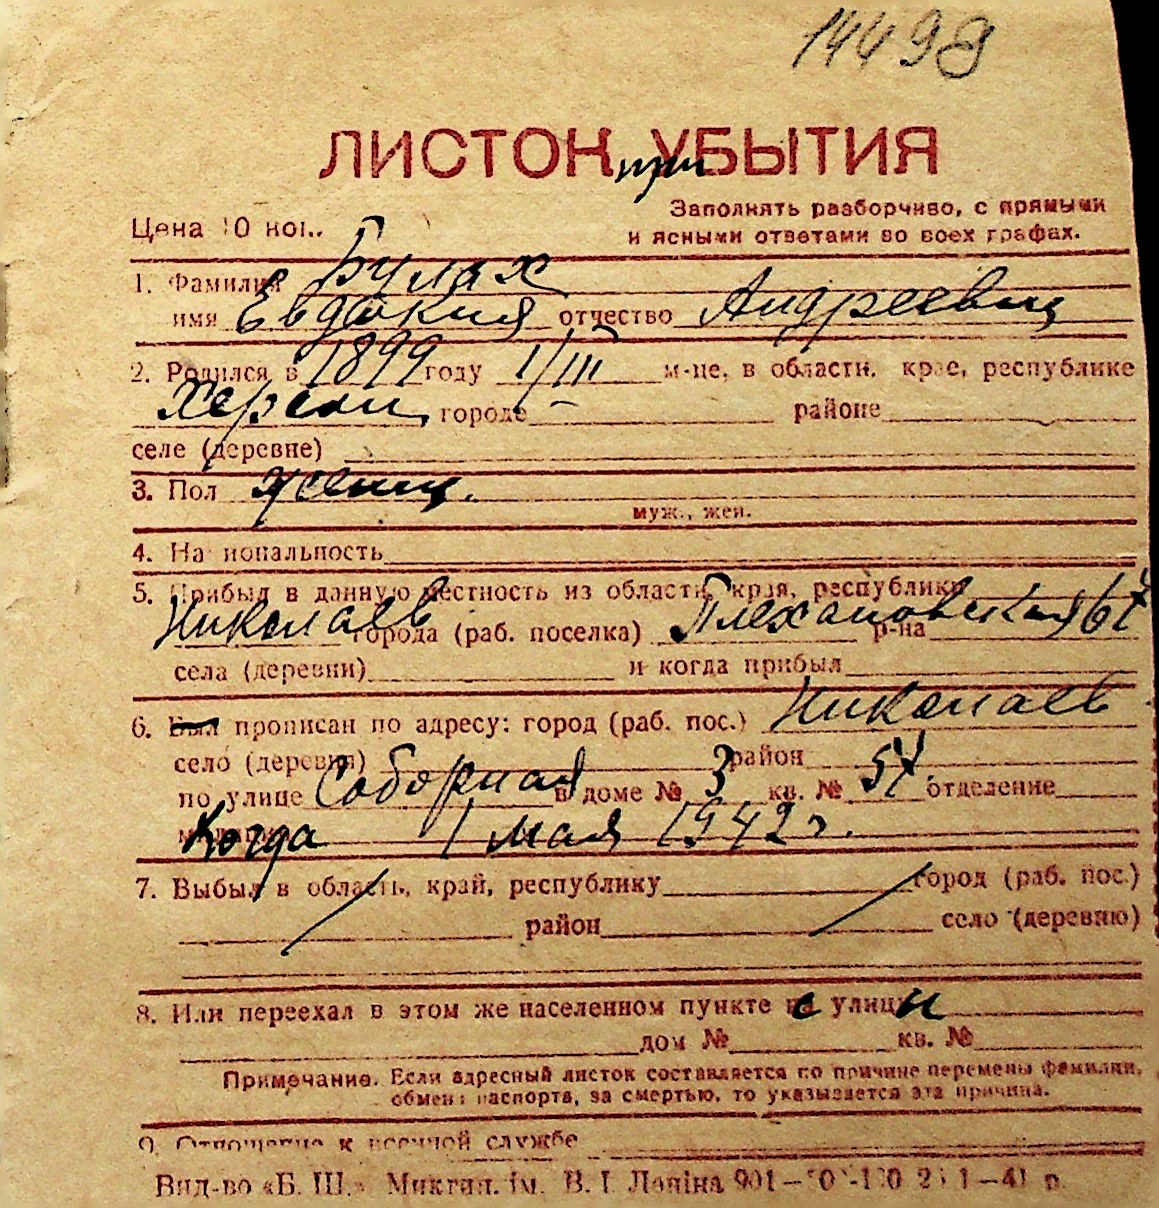 14498
ЛИСТОК при УБЫТИЯ
Заполнять разборчиво, с прямыми
Цена 10 коп.
и ясными ответами во всех графах.
1. Фамилия Булах
имя Евдокия отчество Андреевн
2. Родился в 1899 году 1/III м-це, в области, крае, республике
Херсон городе районе
селе (деревне)
3. Пол женщ.
муж., жен.
4. Национальность
5. Прибыл в данную местность из области, края, республики
Николаев города (раб. поселка) Плехановская 67 р-на
села (деревни) и когда прибыл
6. Был прописан по адресу: город (раб. пос.) Николаев
село (деревня) район
по улице Соборная в доме № 3 кв. № 57. отделение
Когда 1 мая 1942 г.
7. Выбыл в область, край, республику город (раб. пос.)
район село (деревню)
8. Или переехал в этом же населенном пункте с улицы
дом № кв. №
Примечание. Если адресный листок составляется по причине перемены фамилии,
обмена паспорта, за смертью, то указывается эта причина.
9. Отношение к военной службе
Вид-во «Б. Ш.» Микгип. ім. В. І. Леніна 901— 41 р.